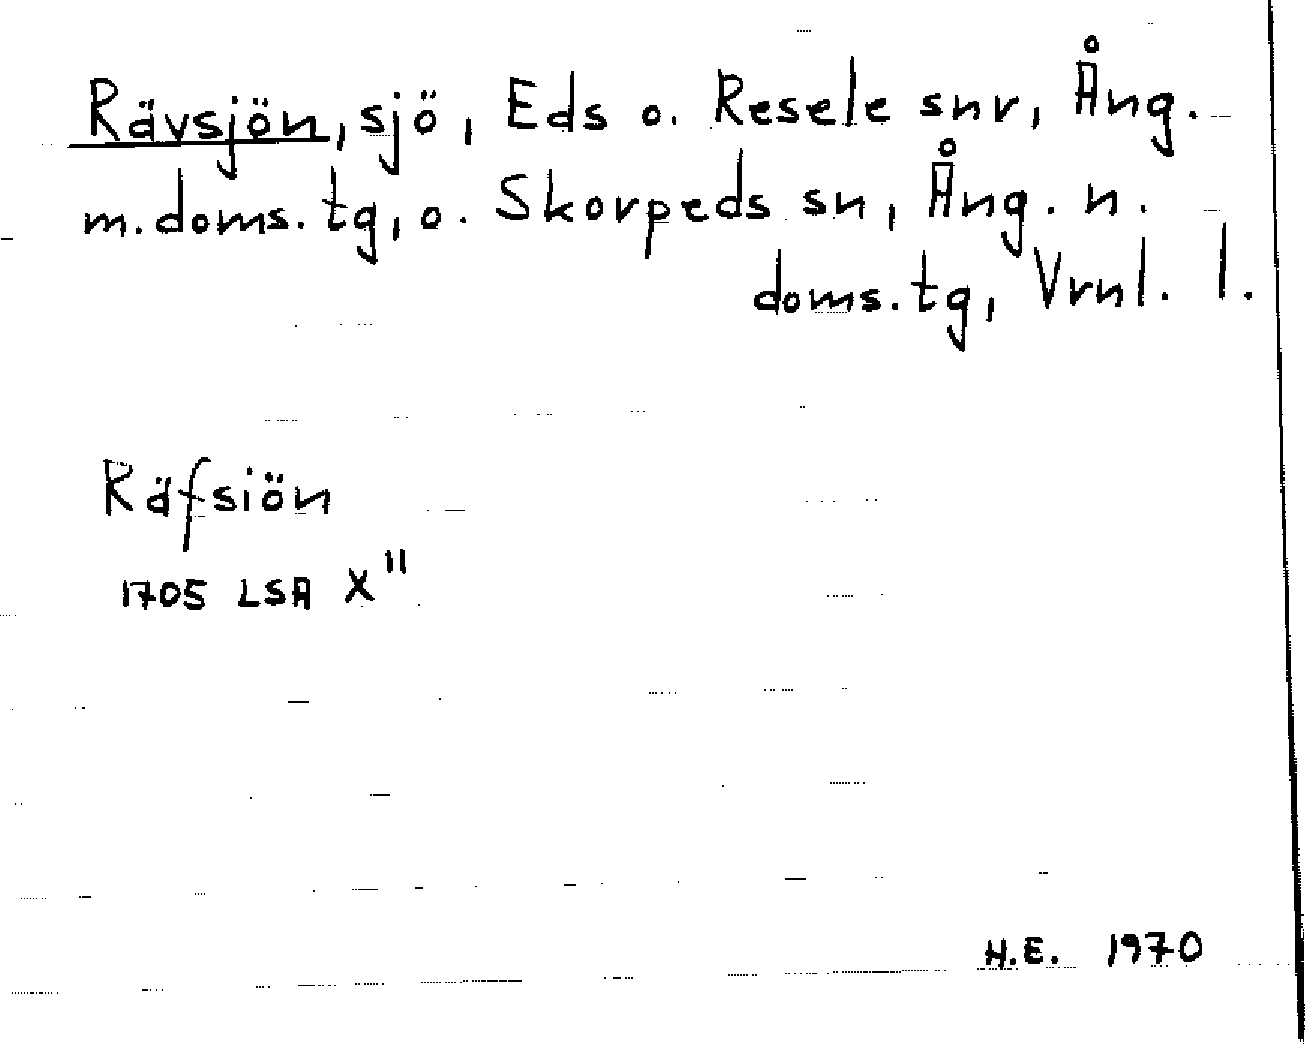 Rävsjön, sjö, Eds o. Resele snr, Ång.
m. doms. tg, o. Skorpeds sn, Ång. n.
doms. tg, Vrnl. l.
Räfsiön
1705 LSA X"
H.E. 1970